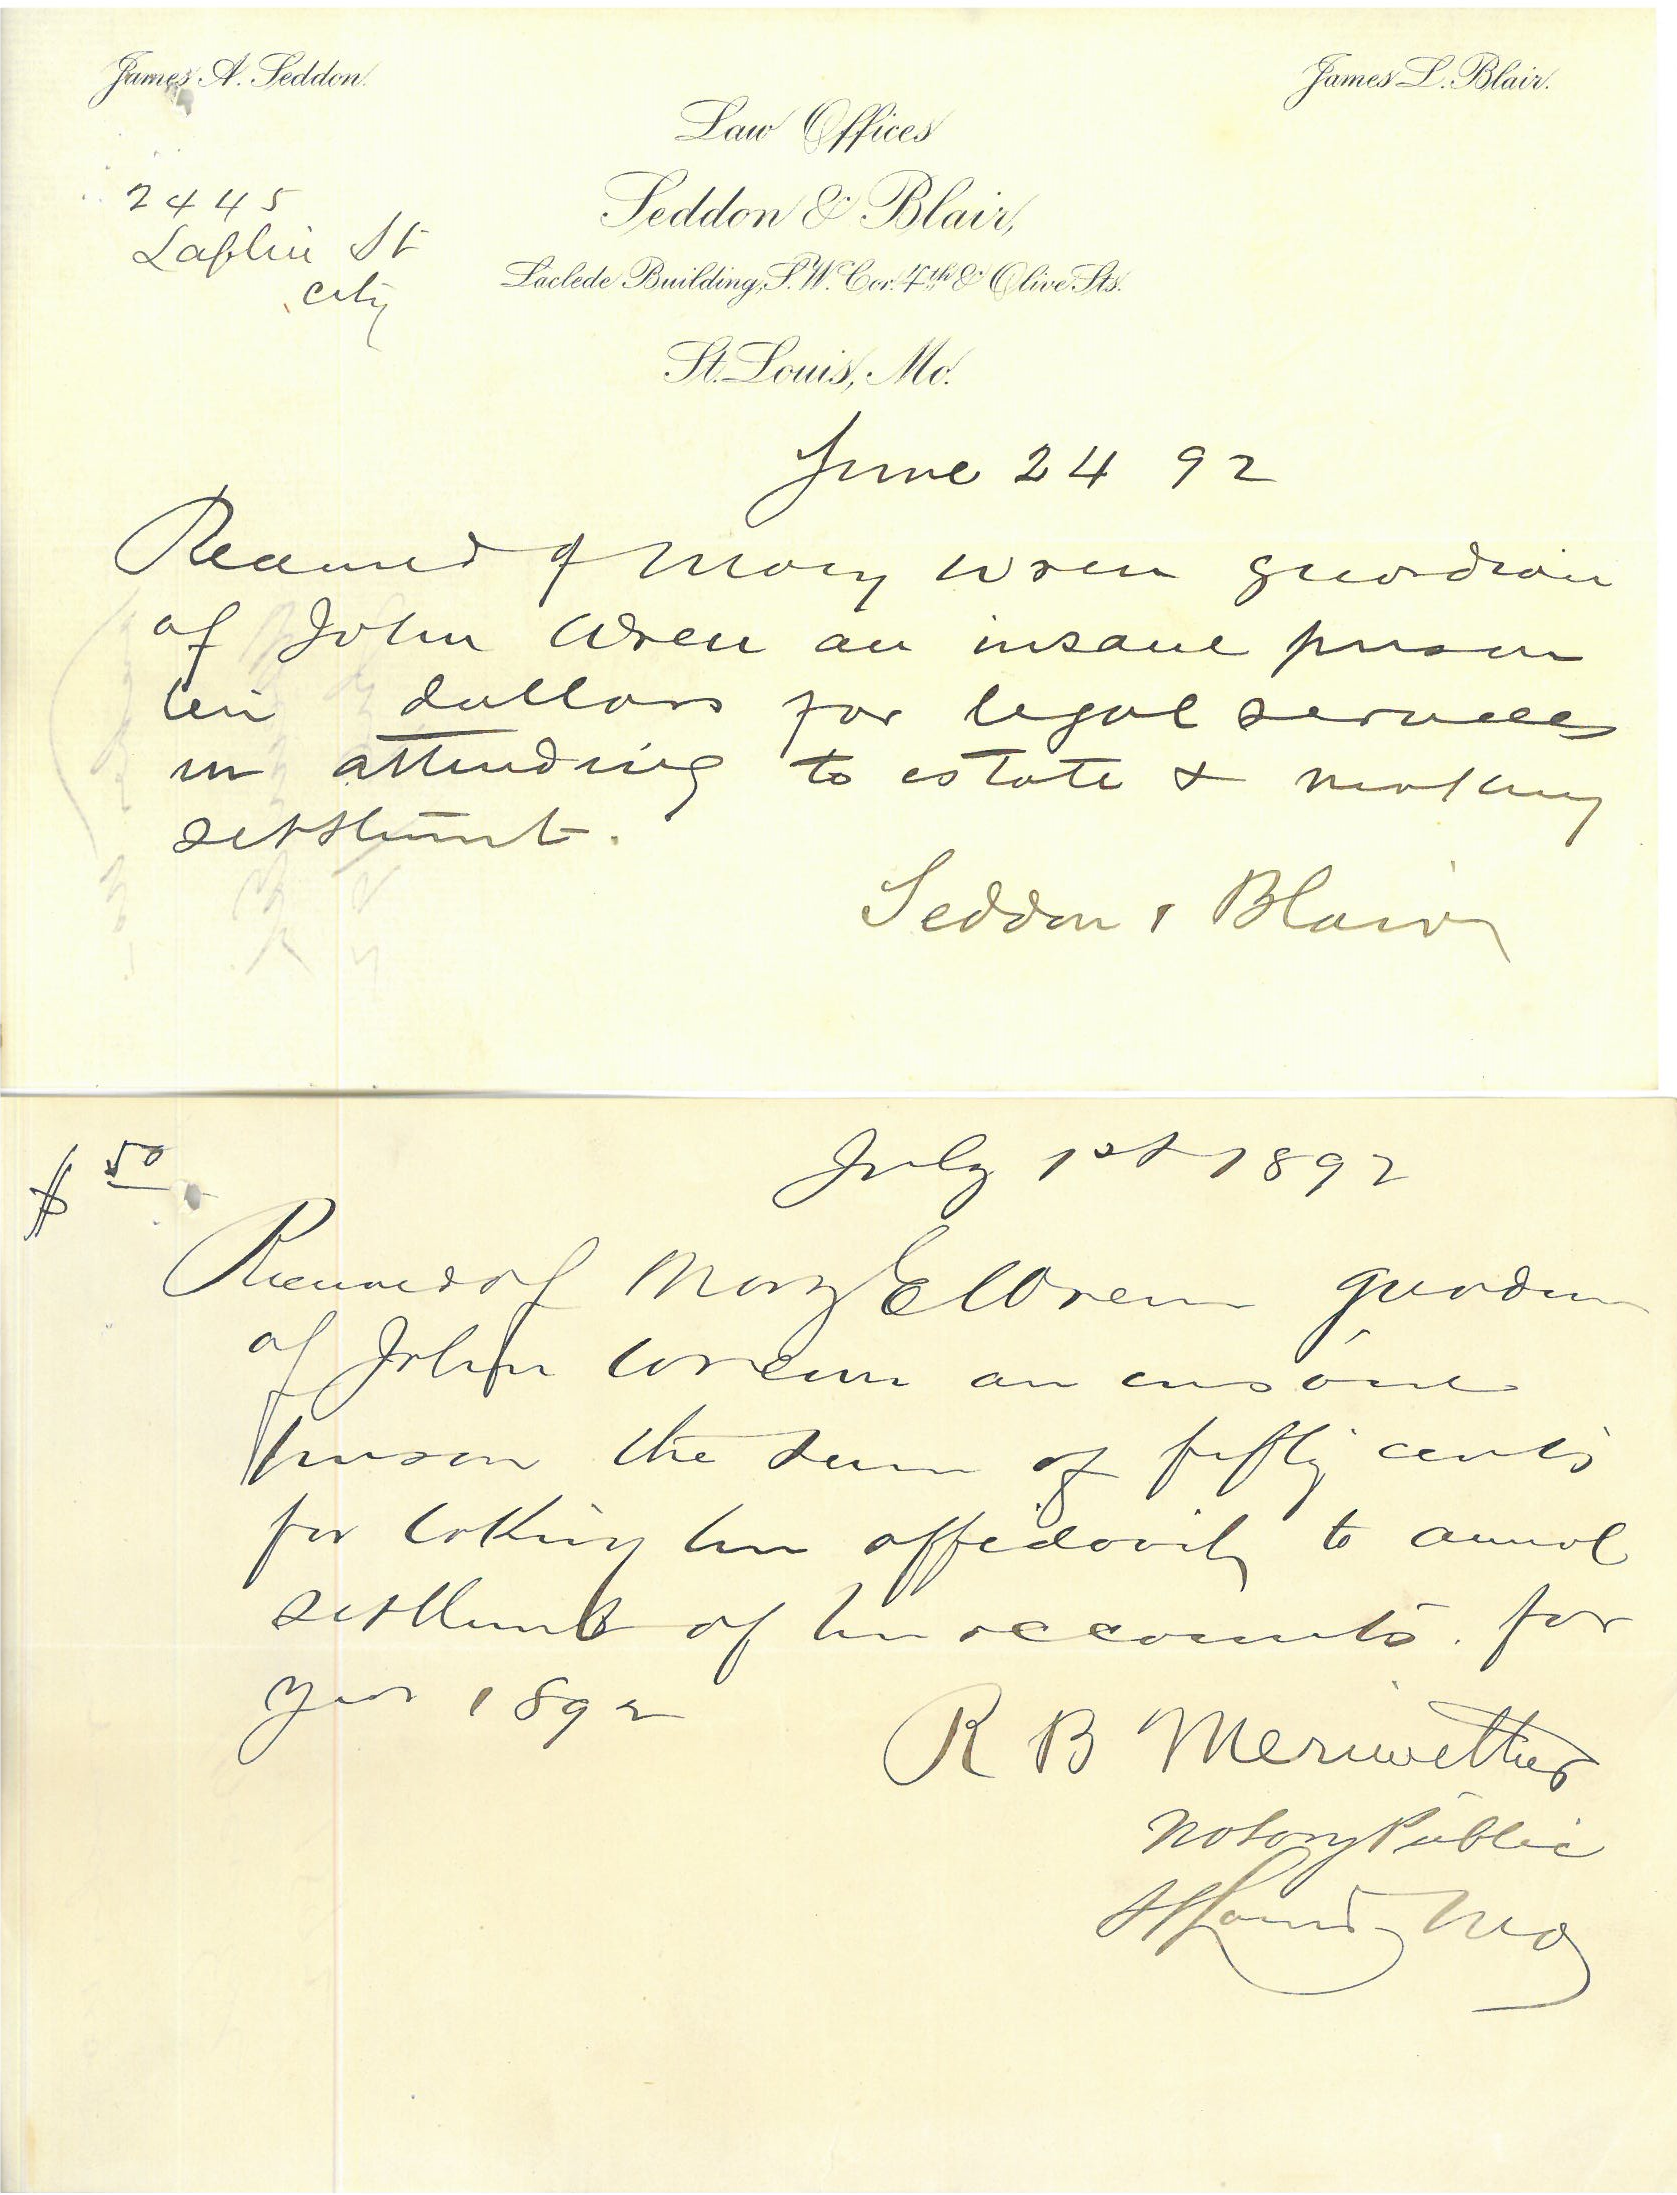 James A. Seddon.
James L. Blair.
Law Offices
Seddon & Blair,
Laclede Building, S.W. Cor. 4th & Olive Sts.
St. Louis, Mo.
2445
Laflin St
city
June 24 92
Received of Mary Wren guardian
of John Wren an insane person
ten dollars for legal services
in attending to estate & making
settlement.
Seddon & Blair
$ 50
July 1st 1892
Received of Mary E Wren guardian
of John Wrenn an insane
person the sum of fifty cents
for taking her affidavit to annual
settlement of her accounts for
year 1892
R B Meriwether
Notary Public
St Louis Mo